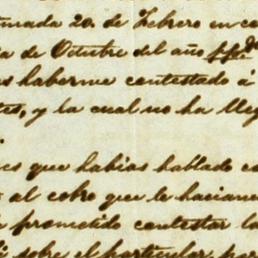 rmada 20. de Febrero en co
ia de Octubre del año ppdo
es haberme contestado á
tes, y la cual no ha lleg
es que habias hablado co
al cobro que le haciamo
prometido contestar la
i sobre el particular par